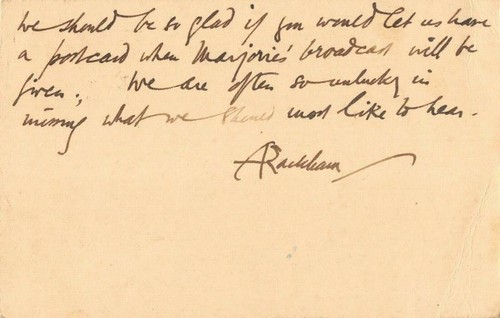 We should be so glad if you would let us have
a postcard when Marjorie's broadcast will be
given. We are often so unlucky in
missing what we should most like to hear.
ARackham